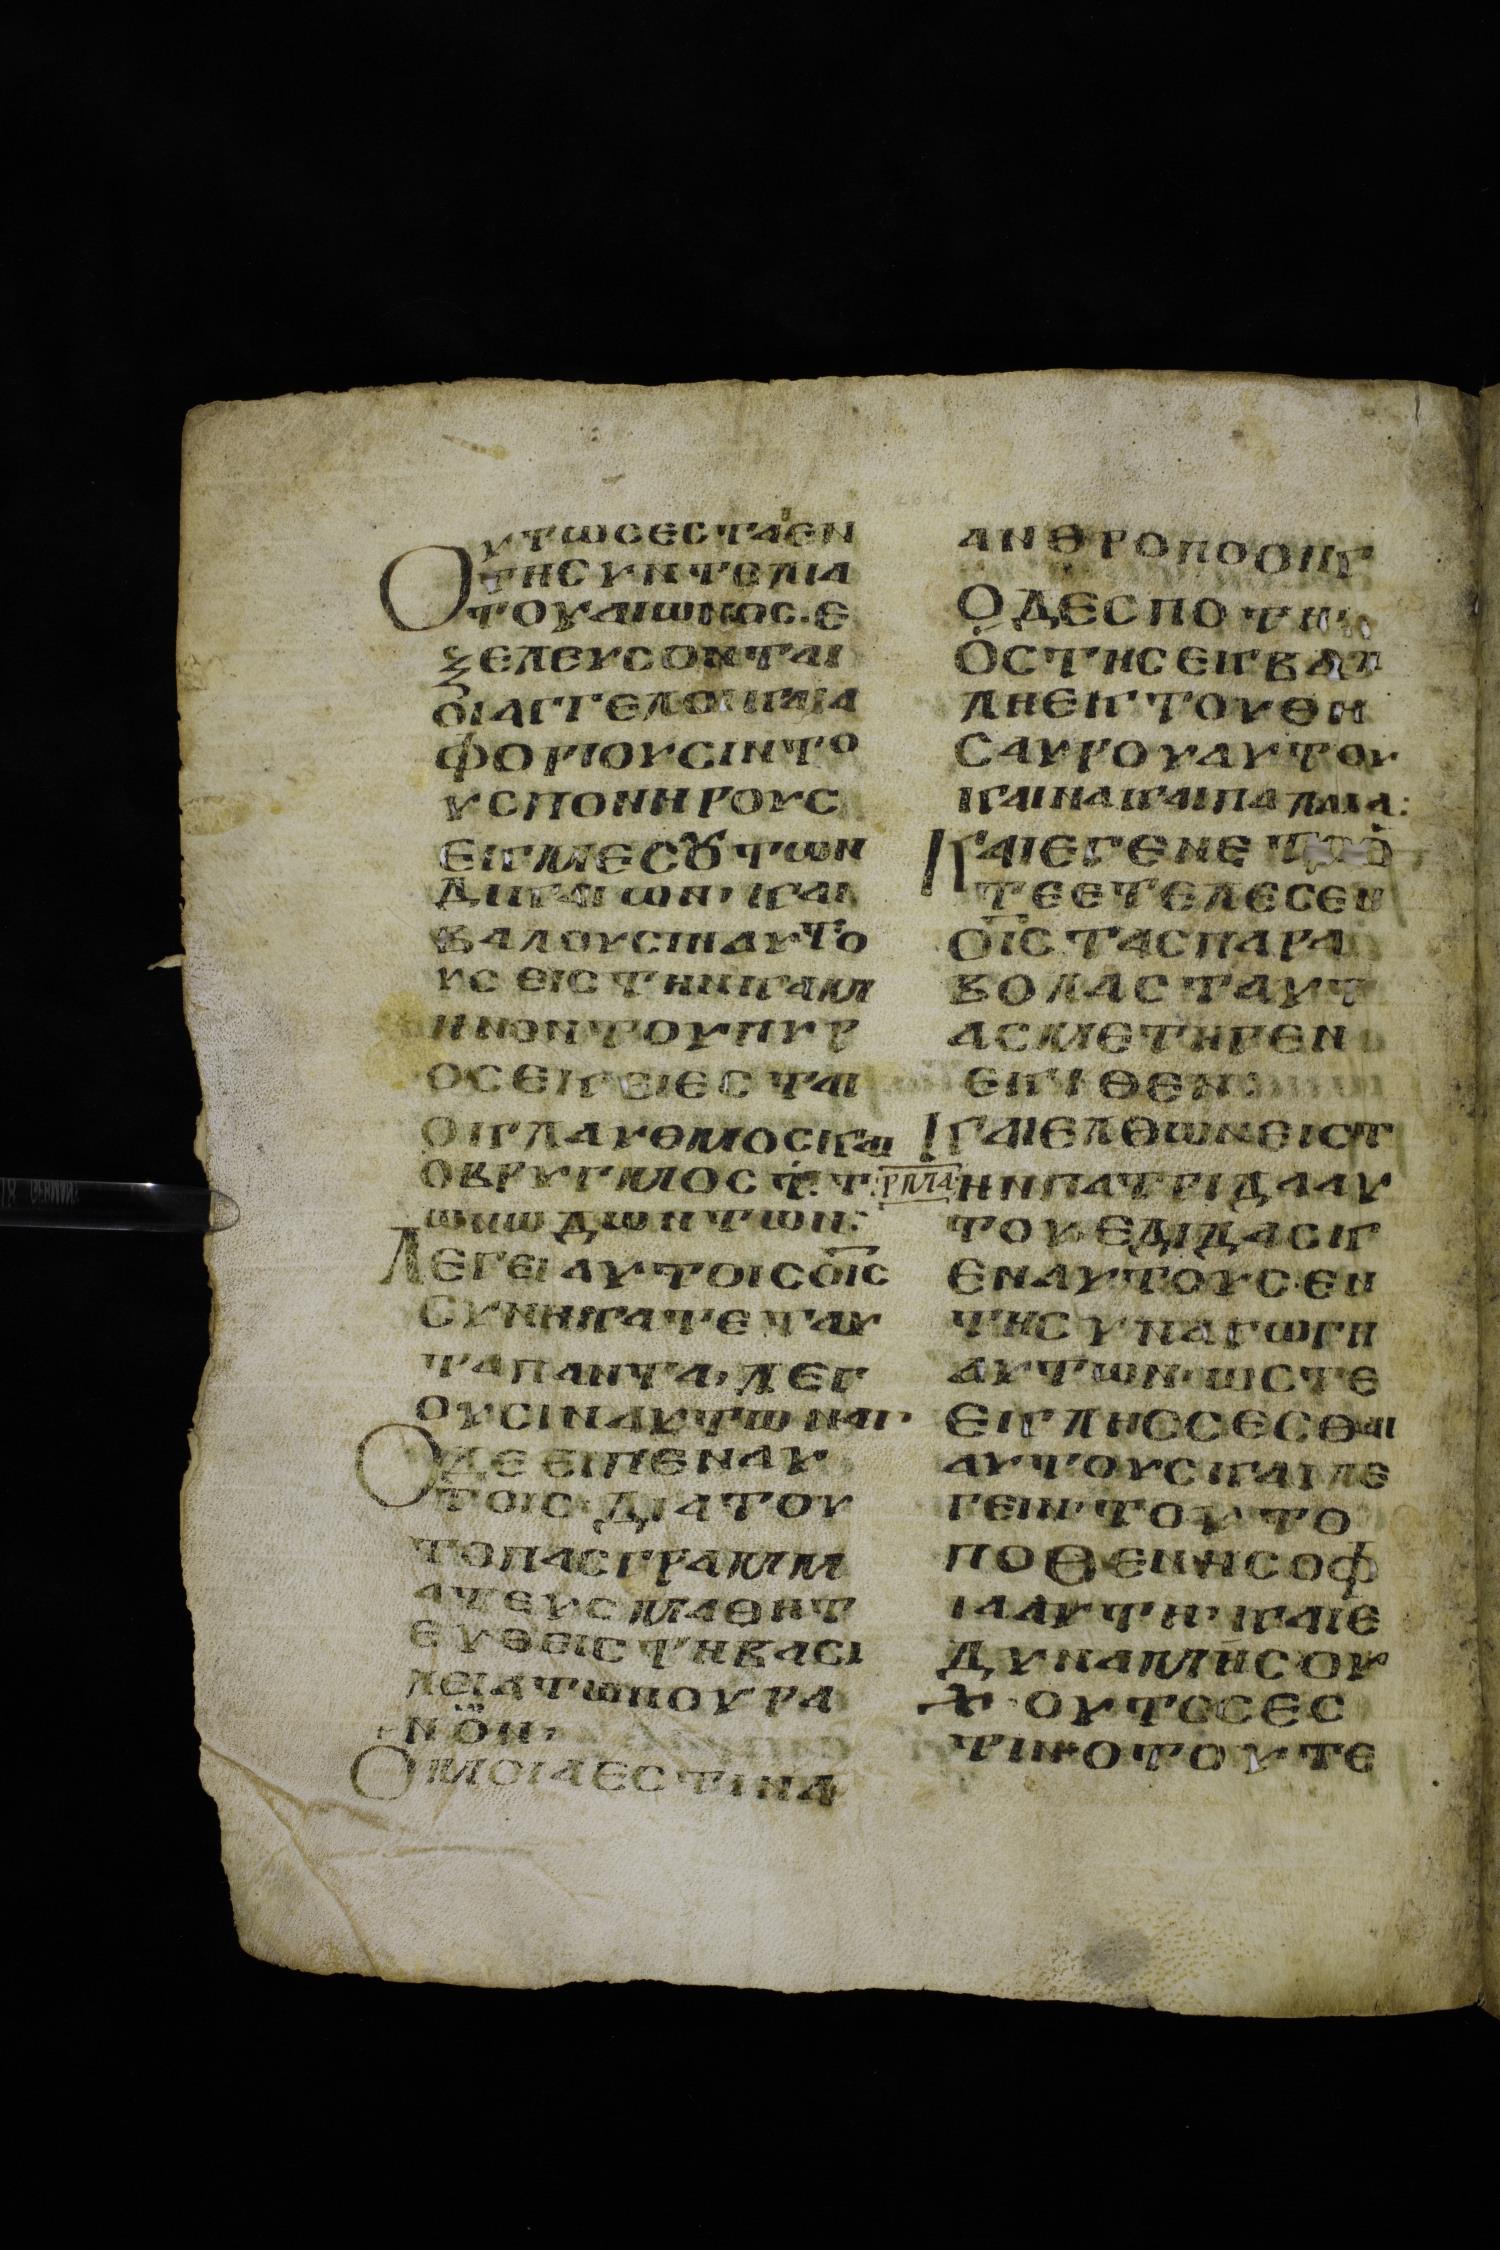 ΟΥΤΩCΕCΤΑΕΝ
ΤΗCΥΝΤΕΛΙΑ
ΤΟΥΑΙΩΝΟC·Ε
ΞΕΛΕΥCΟΝΤΑΙ
ΟΙΑΓΓΕΛΟΙΚΑΙΑ
ΦΟΡΙΟΥCΙΝΤΟ
ΥCΠΟΝΗΡΟΥC
ΕΚΜΕCȢΤΩΝ
ΔΙΚΑΙΩΝ, ΚΑΙ
ΒΑΛΟΥCΙΝΑΥΤΟ
ΥCΕΙCΤΗΝΚΑΜ
ΗΝΟΝΤΟΥΠΥΡ
ΟCΕΚΕΙΕCΤΑΙ
ΟΚΛΑΥΘΜΟCΚΑΙ
ΟΒΡΥΓΜΟC Τ
ΩΝΩΔΩΝΤΩΝ:
ΛΕΓΕΙΑΥΤΟΙCΟΙC
CΥΝΗΚΑΤΕΤΑΥ
ΤΑΠΑΝΤΑ, ΛΕΓ
ΟΥCΙΝΑΥΤΩ
ΟΔΕΕΙΠΕΝΑΥ
ΤΟΙC·ΔΙΑΤΟΥ
ΤΟΠΑCΓΡΑΜΜ
ΑΤΕΥCΜΑΘΗΤ
ΕΥΘΕΙCΤΗΒΑCΙ
ΛΕΙΑΤΩΝΟΥΡΑ
ΝΟΝ,
ΟΜΟΙΑΕCΤΙΝΑ
ΑΝΘΡΟΠΟΟΙΚ
ΟΔΕCΠΟΤΗ
ΟCΤΗCΕΚΒΑΛ
ΛΗΕΚΤΟΥΘΗ
CΑΥΡΟΥΑΥΤΟΥ
ΚΑΙΝΑΚΑΙΠΑΛΑΙΑ:
ΚΑΙΕΓΕΝΕΤΟΟ
ΤΕΕΤΕΛΕCΕΝ
ΟΙCΤΑCΠΑΡΑ
ΒΟΛΑCΤΑΥΤ
ΑCΜΕΤΗΡΕΝ
ΕΚΙΘΕΝ:
ΚΑΙΕΛΘΩΝΕΙCΤ
ΡΜΑ ΗΝΠΑΤΡΙΔΑΑΥ
ΤΟΥΕΔΙΔΑCΚ
ΕΝΑΥΤΟΥC·ΕΝ
ΤΗCΥΝΑΓΩΓΗ
ΑΥΤΩΝ·ΩCΤΕ
ΕΚΛΗCCΕCΘΑΙ
ΑΥΤΟΥCΚΑΙΛΕ
ΓΕΙΝ·ΤΟΥΤΟ
ΠΟΘΕΝΗCΟΦ
ΙΑΑΥΤΗ, ΚΑΙΕ
ΔΥΝΑΜΗCΟΥ
ΟΥΤΟCΕC
ΤΙΝ·ΟΤΟΥΤΕ